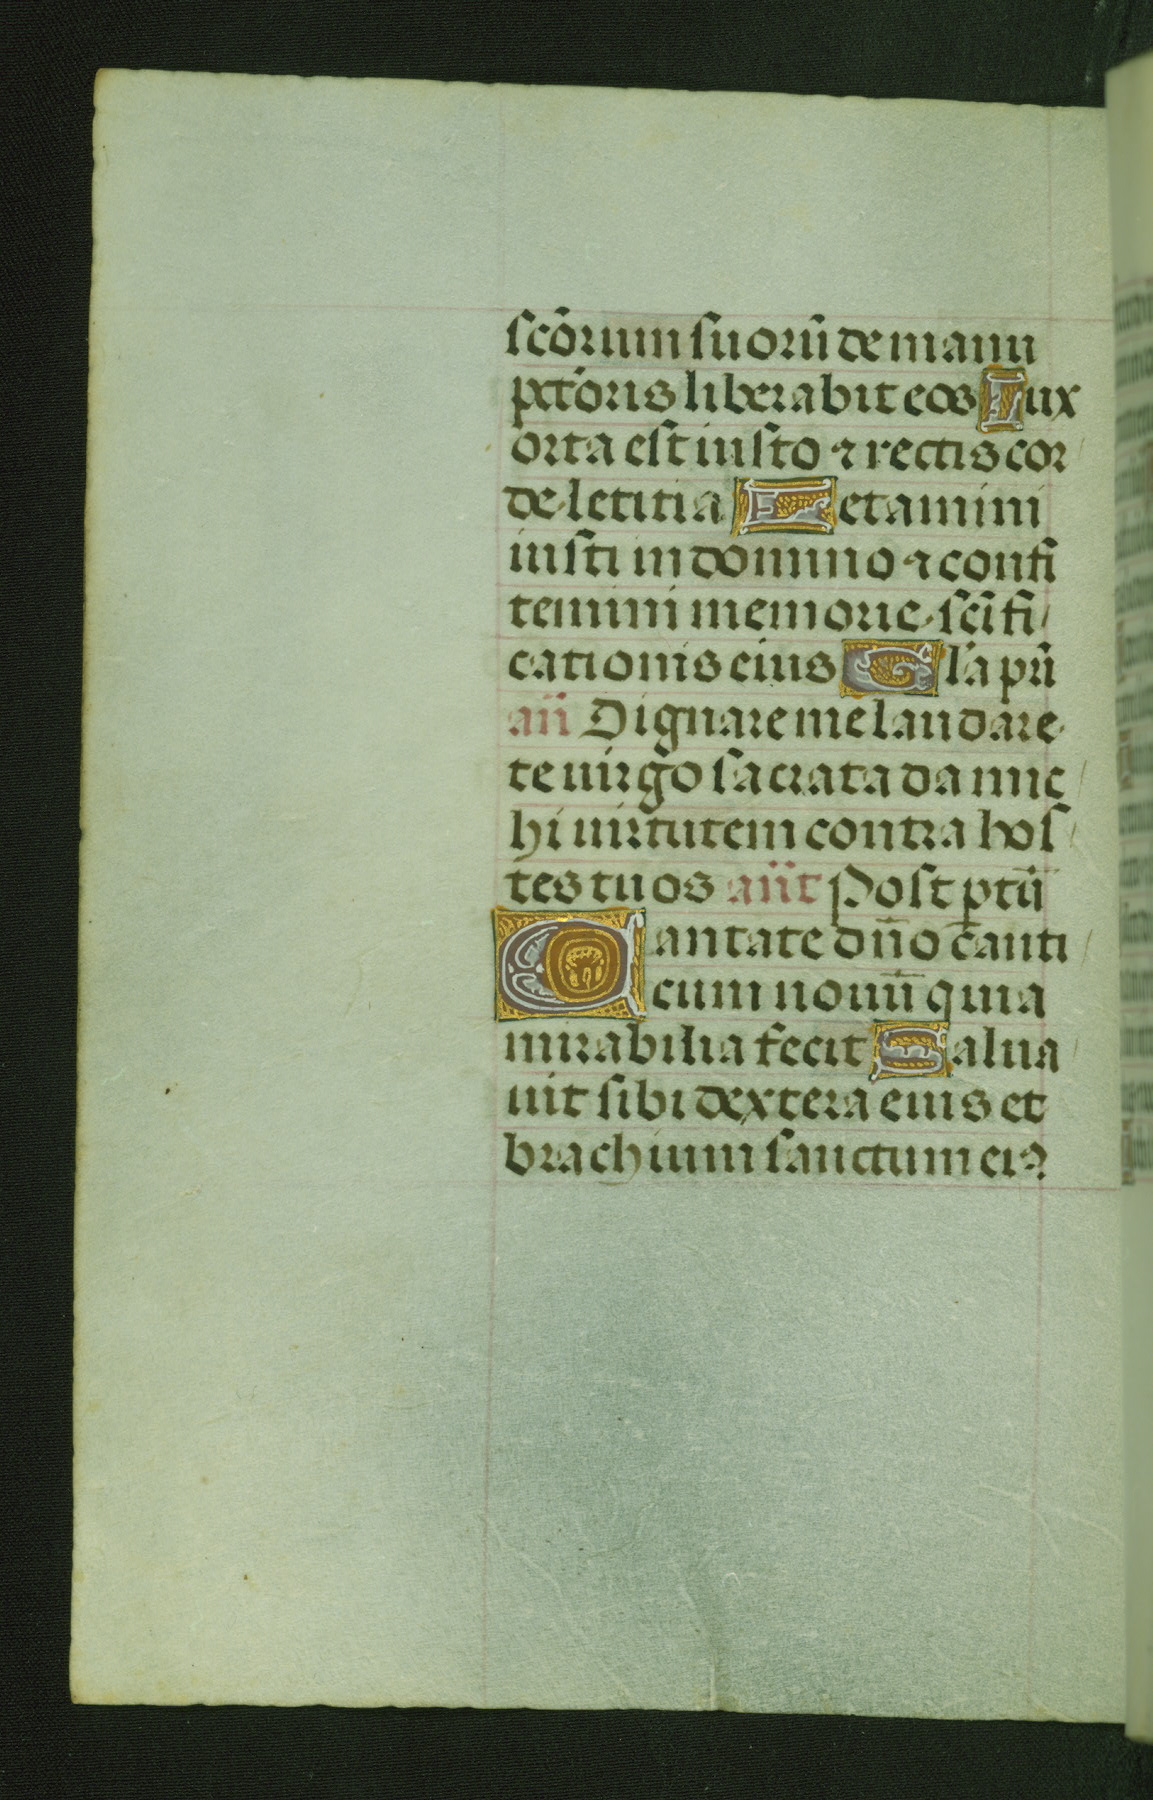 scōrum suorū de manu
pctōris liberabit eos Lux
orta est iusto ⁊ rectis cor
de letitia Letamini
iusti in domino ⁊ confi
temini memorie sc̄ifi
cationis eius Gl̄a pr̄i
an̄ Dignare me laudare
te uirgo sacrata da mic
hi uirtutem contra hos
tes tuos an̄t Post ptū
Cantate dn̄o canti
cum nouū quia
mirabilia fecit Salua
uit sibi dextera eius et
brachium sanctum eiꝰ